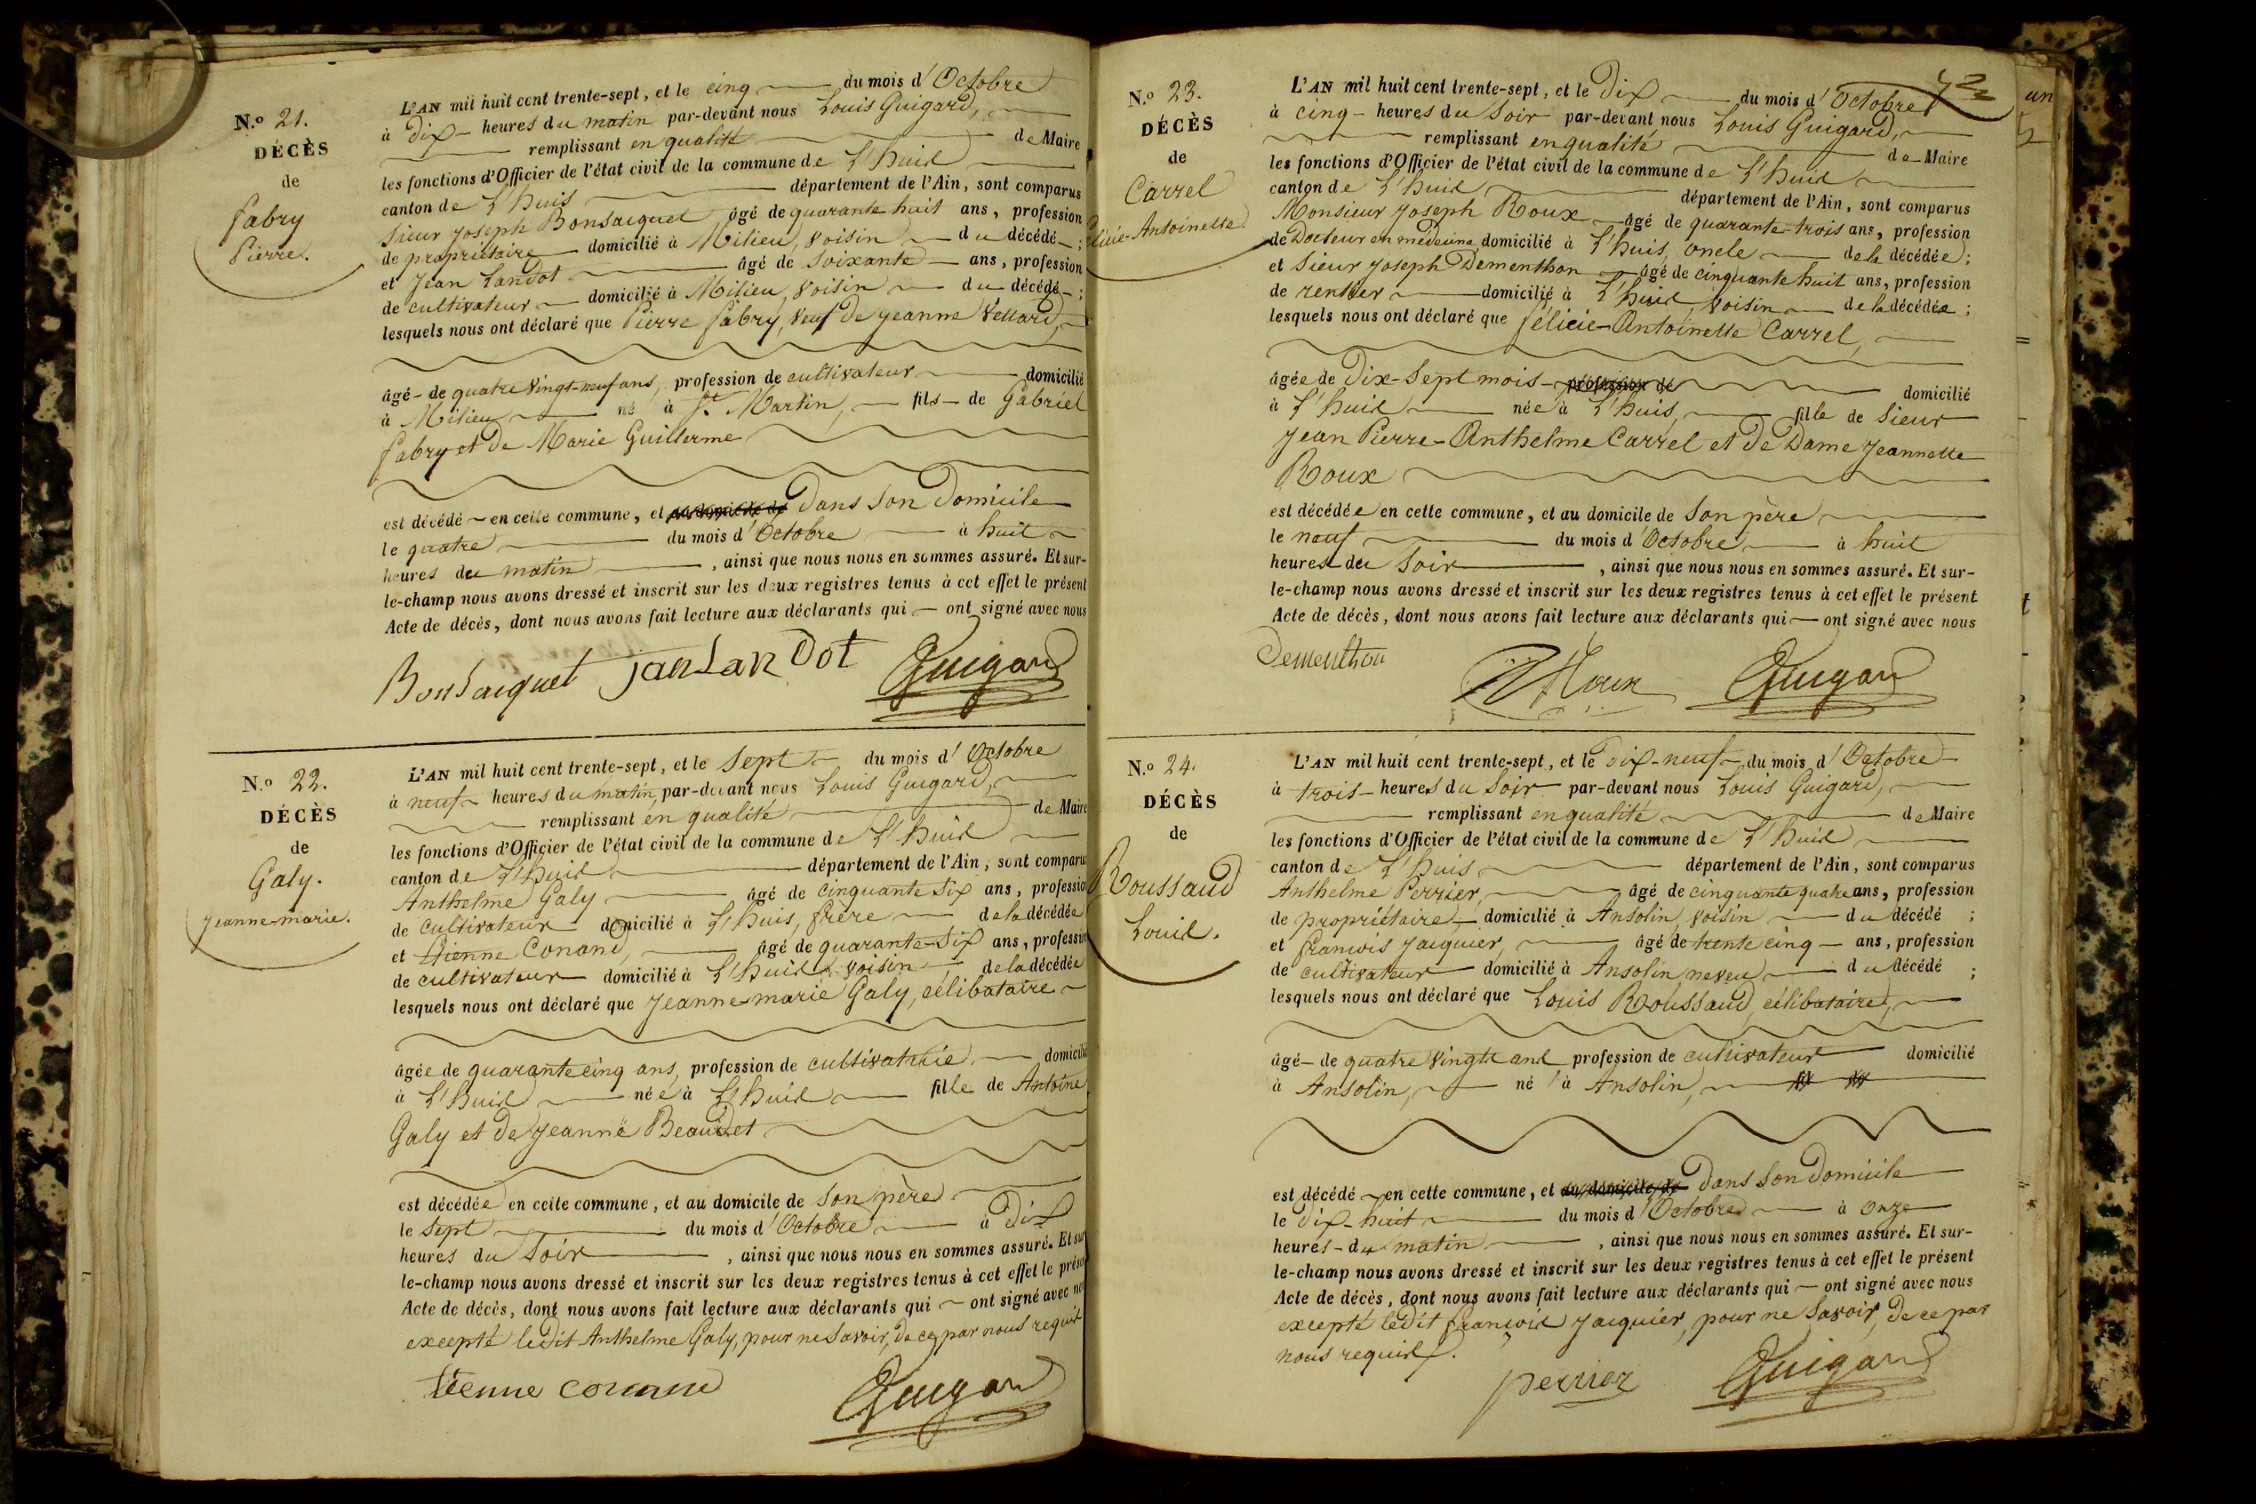 N.o 21.
DÉCÈS
de
Fabry
Pierre.
L'AN mil huit cent trente-sept, et le cinq du mois d'Octobre
à dix heures du matin par-devant nous Louis Guigard,
remplissant en qualité de Maire
les fonctions d'Officier de l'état civil de la commune de L'huis
canton de L'huis département de l'Ain, sont comparus
Sieur Joseph Bonsacquet âgé de quarante huit ans, profession
de propriétaire domicilié à Milieu, voisin du décédé ;
et Jean Landot âgé de soixante ans, profession
de cultivateur domicilié à Milieu, voisin du décédé ;
lesquels nous ont déclaré que Pierre Fabry, veuf de Jeanne Vettard,
âgé de quatre vingt-neuf ans, profession de cultivateur domicilié
à Milieu né à St. Martin, fils de Gabriel
Fabry et de Marie Guillerme
est décédé en cette commune, et au domicile de dans son domicile
le quatre du mois d'Octobre à huit
heures du matin, ainsi que nous nous en sommes assuré. Et sur-
le-champ nous avons dressé et inscrit sur les deux registres tenus à cet effet le présent
Acte de décès, dont nous avons fait lecture aux déclarants qui ont signé avec nous
Bonsacquet Jan Landot Guigard
N.o 22.
DÉCÈS
de
Galy.
Jeanne-marie.
L'AN mil huit cent trente-sept, et le sept du mois d'Octobre
à neuf heures du matin, par-devant nous Louis Guigard,
remplissant en qualité de Maire
les fonctions d'Officier de l'état civil de la commune de L'huis
canton de L'huis département de l'Ain, sont comparus
Anthelme Galy âgé de cinquante six ans, profession
de cultivateur domicilié à L'huis, frère de la décédée
et Etienne Conand, âgé de quarante-six ans, profession
de cultivateur domicilié à L'huis, voisin de la décédée
lesquels nous ont déclaré que Jeanne-marie Galy, célibataire
âgée de quarante cinq ans, profession de cultivatrice domicilié
à L'huis née à L'huis fille de Antoine
Galy et de Jeanne Beaudet
est décédée en cette commune, et au domicile de son père
le sept du mois d'Octobre à dix
heures du soir, ainsi que nous nous en sommes assuré. Et sur
le-champ nous avons dressé et inscrit sur les deux registres tenus à cet effet le présent
Acte de décès, dont nous avons fait lecture aux déclarants qui ont signé avec nous
excepté ledit Anthelme Galy, pour ne savoir, de ce par nous requis
tienne conand Guigard
72
N.o 23.
DÉCÈS
de
Carrel
Félicie-Antoinette
L'AN mil huit cent trente-sept, et le dix du mois d'Octobre
à cinq heures du soir par-devant nous Louis Guigard,
remplissant en qualité de Maire
les fonctions d'Officier de l'état civil de la commune de L'huis
canton de L'huis département de l'Ain, sont comparus
Monsieur Joseph Roux âgé de quarante-trois ans, profession
de Docteur en médecine, domicilié à L'huis, oncle de la décédée ;
et Sieur Joseph Dementhon âgé de cinquante huit ans, profession
de rentier domicilié à L'huis, voisin de la décédée ;
lesquels nous ont déclaré que félicie-Antoinette Carrel,
âgée de dix-sept mois profession de domicilié
à L'huis née à L'huis, fille de Sieur
Jean Pierre-Anthelme Carrel et de Dame Jeannette
Roux
est décédée en cette commune, et au domicile de son père
le neuf du mois d'Octobre à huit
heures du soir, ainsi que nous nous en sommes assuré. Et sur-
le-champ nous avons dressé et inscrit sur les deux registres tenus à cet effet le présent
Acte de décès, dont nous avons fait lecture aux déclarants qui ont signé avec nous
Dementhon Roux Guigard
N.o 24.
DÉCÈS
de
Roussaud
Louis.
L'AN mil huit cent trente-sept, et le dix-neuf du mois d'Octobre
à trois heures du soir par-devant nous Louis Guigard,
remplissant en qualité de Maire
les fonctions d'Officier de l'état civil de la commune de L'huis
canton de L'huis département de l'Ain, sont comparus
Anthelme Perrier, âgé de cinquante quatre ans, profession
de propriétaire, domicilié à Ansolin, voisin du décédé ;
et francois Jacquier, âgé de trente cinq ans, profession
de cultivateur domicilié à Ansolin, neveu du décédé ;
lesquels nous ont déclaré que Louis Roussaud, célibataire,
âgé de quatre vingts ans profession de cultivateur domicilié
à Ansolin, né à Ansolin,
est décédé en cette commune, et au domicile de dans son domicile
le dix-huit du mois d'Octobre à onze
heures du matin, ainsi que nous nous en sommes assuré. Et sur-
le-champ nous avons dressé et inscrit sur les deux registres tenus à cet effet le présent
Acte de décès, dont nous avons fait lecture aux déclarants qui ont signé avec nous
excepté ledit francois Jacquier, pour ne savoir, de ce par
nous requis.
perrier Guigard